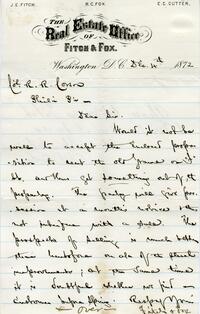 J. E. FITCH. R. C. FOX. E. C. CUTTER.
THE
Real Estate Office
OF
FITCH & FOX.
Washington D. C. Dec 4th 1872
Col. R. R. Corson
Phila Pa —
Dear Sir.
Would it not be
well to accept the enclosed propo-
sition to rent the old house on it
&c, and thus get something out of the
property. The party will give pos-
session at a month's notice & thus
not interfere with a sale. The
prospects of selling is much better
than heretofore on a/c of the street
improvements; at the same time
it is doubtful whether we find a
customer before Spring. Respy Yours
Fitch & Fox
Over